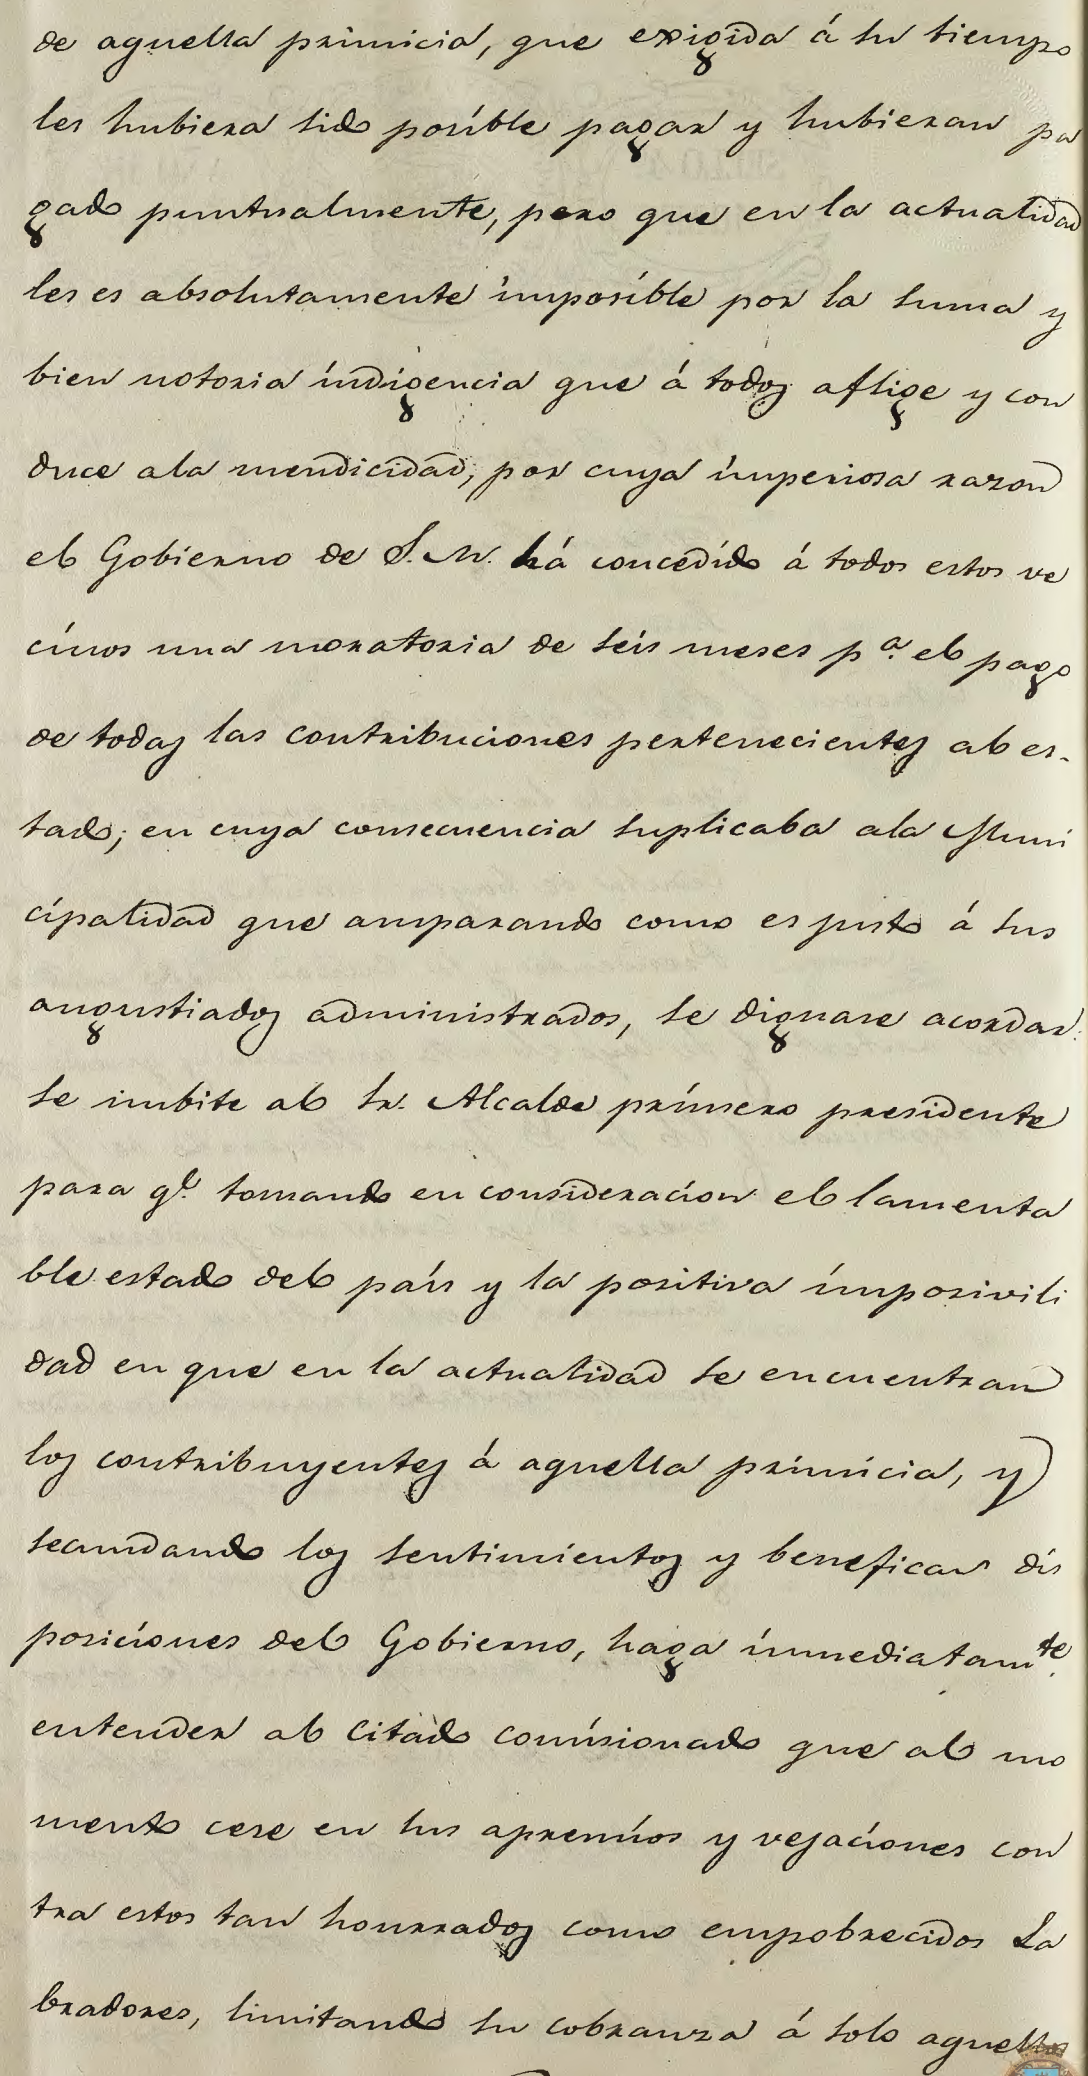 de aquella primicia, que exigida á su tiempo
les hubiera sido posible pagar y hubieran pa
gado puntualmente, pero que en la actualidad
les es absolutamente imposible por la suma y
bien notoria indigencia que á todos aflige y con
duce a la mendicidad, por cuya imperiosa razon
el Gobierno de S. M. há concedido á todos estos ve
cinos una moratoria de seis meses pª. el pago
de todas las contribuciones pertenecientes al es-
tado; en cuya consecuencia suplicaba a la Muni
cipalidad que amparando como es justo á sus
angustiados administrados, se dignase acordar:
se imbite al Sr. Alcalde primero presidente
para qe. tomando en consideracion el lamenta
ble estado del país y la positiva imposivili
dad en que en la actualidad se encuentran
los contribuyentes á aquella primicia, y
secundando los sentimientos y beneficas dis
posiciones del Gobierno, haga inmediatamte.
entender al citado comisionado que al mo
mento cese en sus apremios y vejaciones con
tra estos tan honrrados como empobrecidos La
bradores, limitando su cobranza á solo aquellos